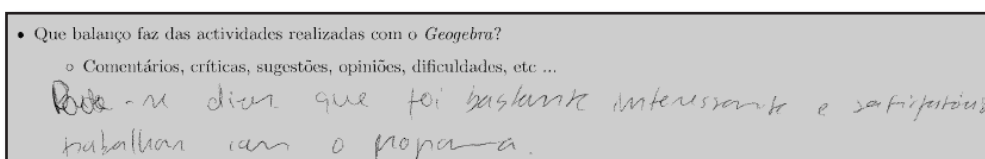 • Que balanço faz das actividades realizadas com o Geogebra?
◦ Comentários, críticas, sugestões, opiniões, dificuldades, etc ...
Pode-se dizer que foi bastante interessante e satisfatório
trabalhar com o programa.